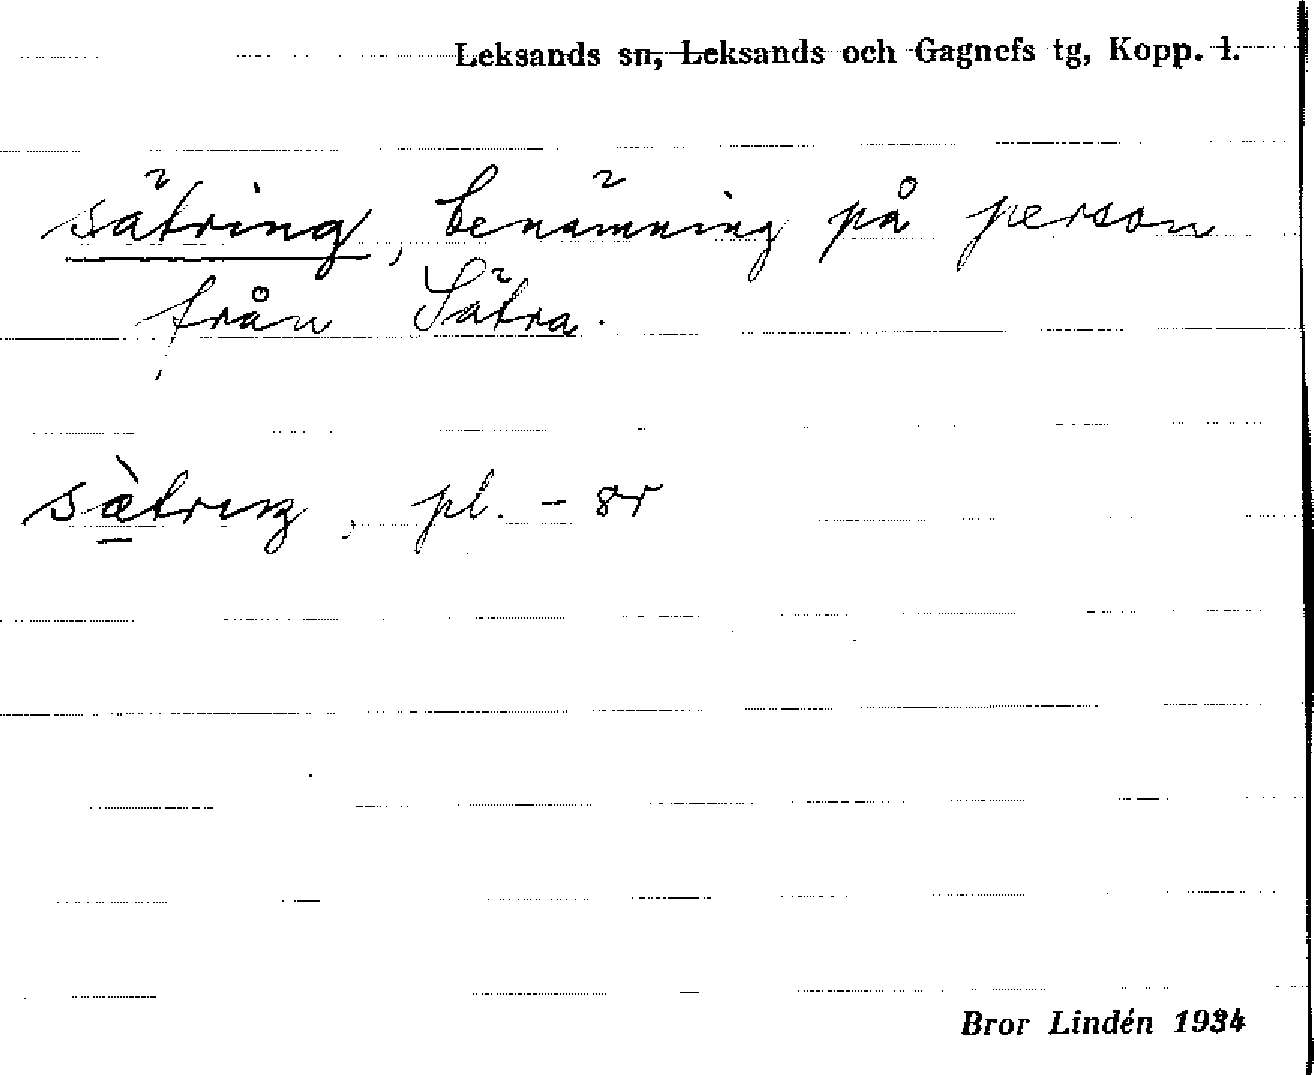 Leksands sn, Leksands och Gagnefs tg, Kopp. l.
sätring, benämning på person
från Sätra.
sä̀trıŋ, pl. -ər
Bror Lindén 1934